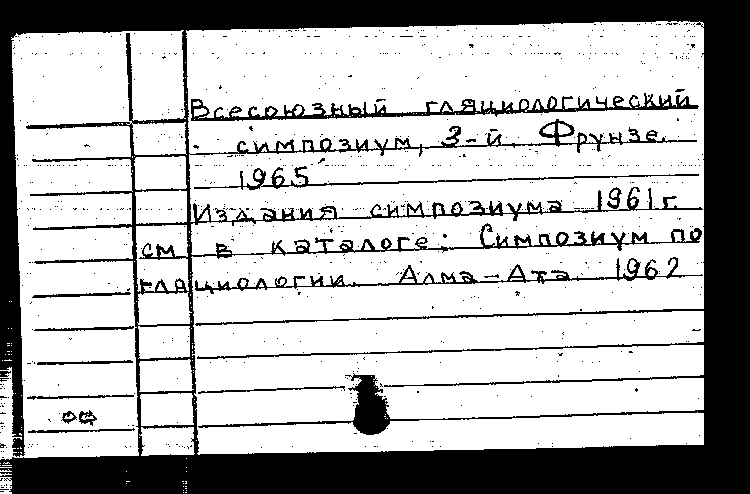 Всесоюзный гляциологический
симпозиум, 3-й. Фрунзе.
1965
Издания симпозиума 1961 г.
см. в каталоге: Симпозиум по
гляциологии. Алма-Ата. 1962